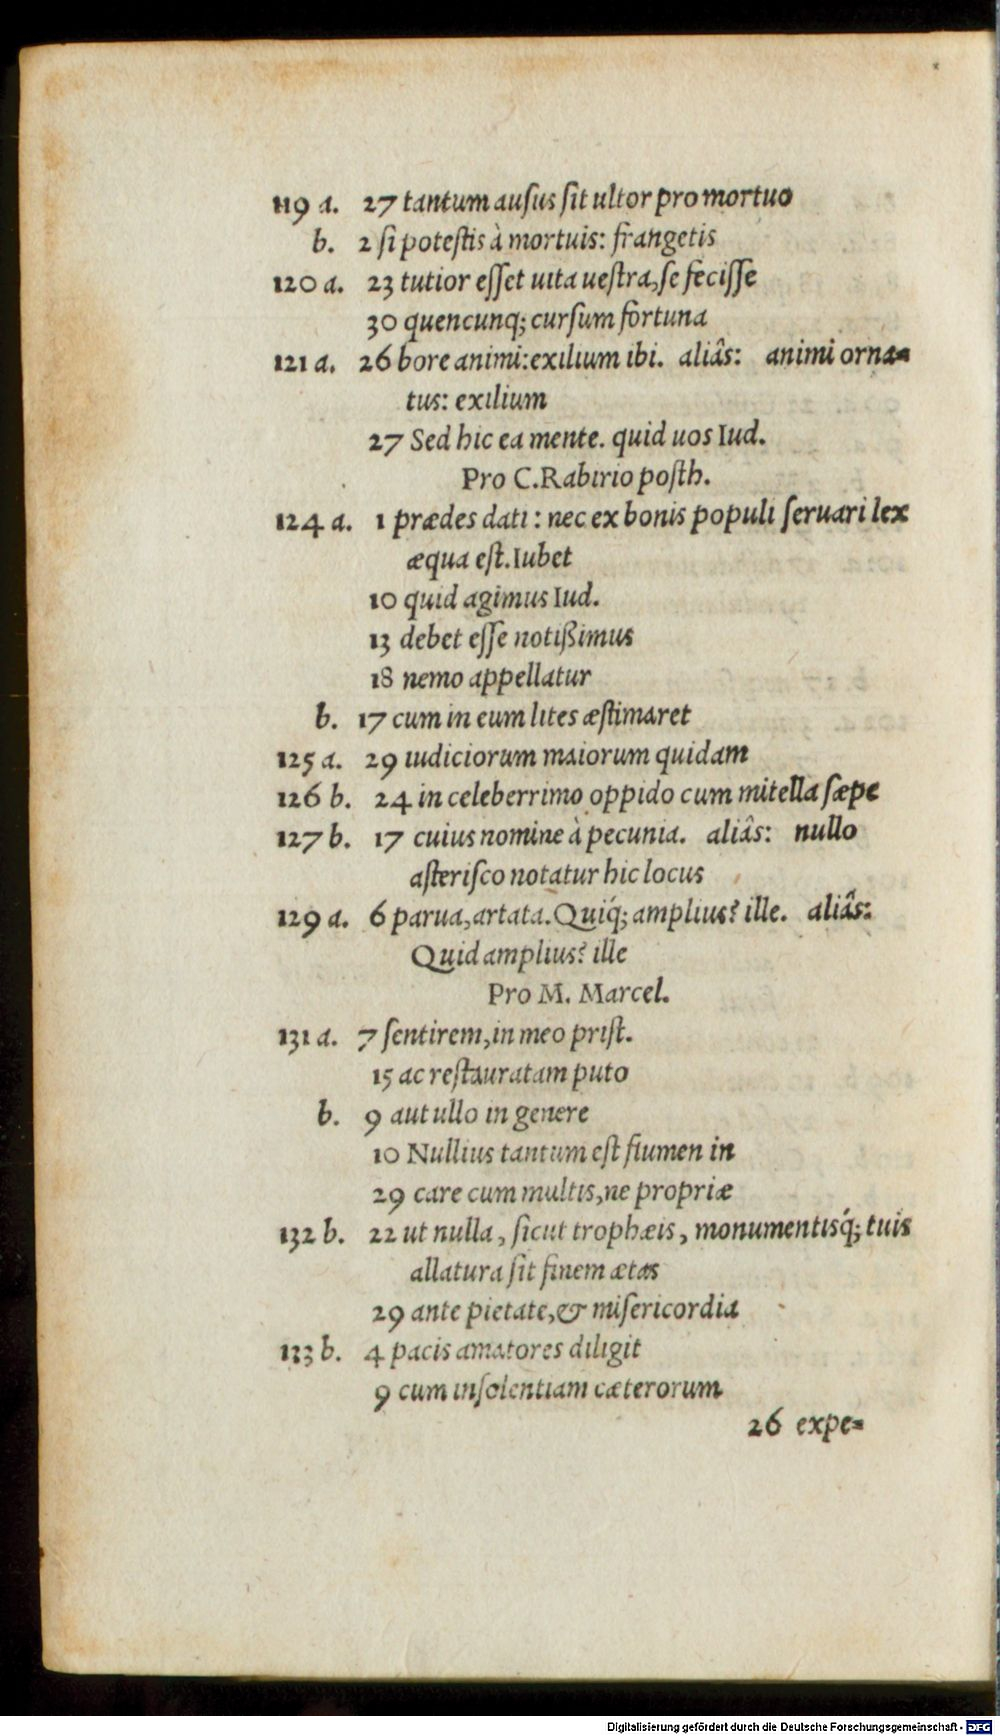 119 a. 27 tantum auſus ſit ultor pro mortuo
b. 2 ſi poteſtis à mortuis: frangetis
120 a. 23 tutior eſſet uita ueſtra, ſe feciſſe
30 quencunq; curſum fortuna
121 a. 26 bore animi: exilium ibi. aliâs: animi orna=
tus: exilium
27 Sed hic ea mente. quid uos Iud.
Pro C. Rabirio poſth.
124 a. 1 prædes dati : nec ex bonis populi ſeruari lex
æqua eſt. Iubet
10 quid agimus Iud.
13 debet eſſe notißimus
18 nemo appellatur
b. 17 cum in eum lites æſtimaret
125 a. 29 iudiciorum maiorum quidam
126 b. 24 in celeberrimo oppido cum mitella ſæpe
127 b. 17 cuius nomine à pecunia. aliâs: nullo
aſteriſco notatur hic locus
129 a. 6 parua, artata. Quiq́; amplius? ille. aliâs:
Quid amplius? ille
Pro M. Marcel.
131 a. 7 ſentirem, in meo priſt.
15 ac reſtauratam puto
b. 9 aut ullo in genere
10 Nullius tantum eſt flumen in
29 care cum multis, ne propriæ
132 b. 22 ut nulla, ſicut trophæis, monumentisq́; tuis
allatura ſit finem ætas
29 ante pietate, & miſericordia
133 b. 4 pacis amatores diligit
9 cum inſolentiam cæterorum
26 expe=
Digitalisierung gefördert durch die Deutsche Forschungsgemeinschaft - DFG